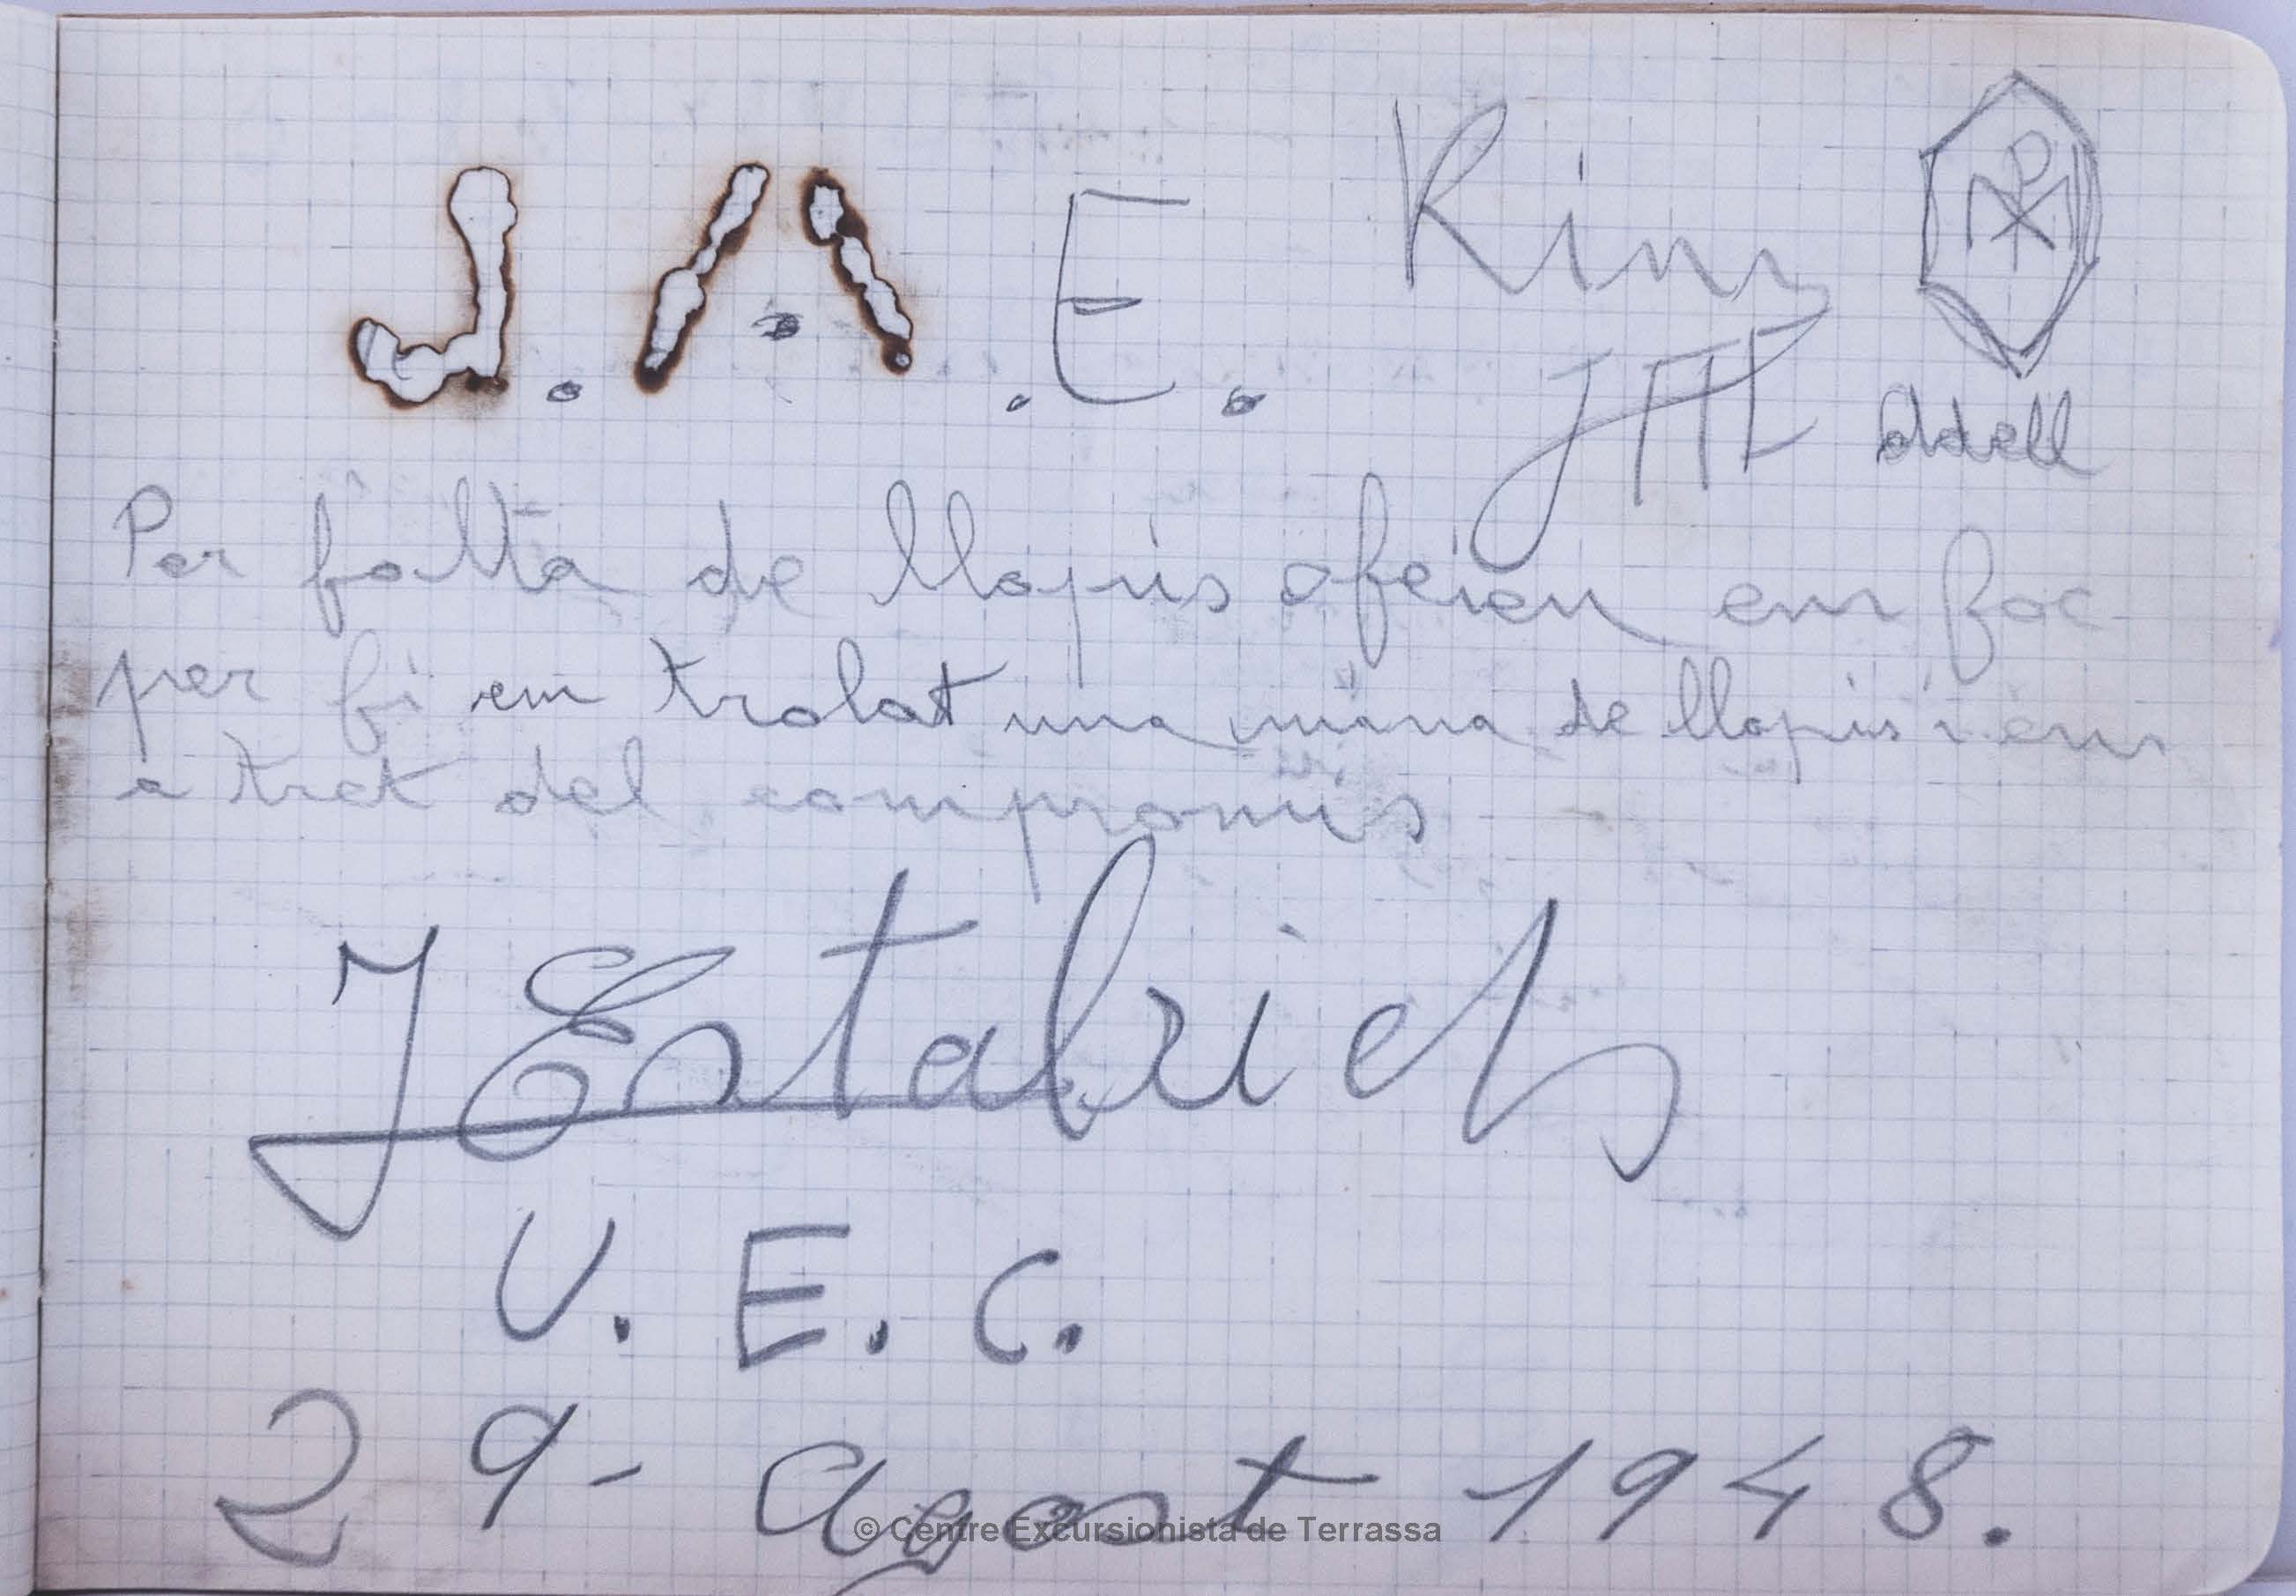 J. A. E.
Rius
JAE
Adell
Per falta de llapis o feien em foc
per fi em trobat una mina de llapis i ens
a tret del compromis
J Estabiells
U. E. C.
29- Agost 1948.
© Centre Excursionista de Terrassa